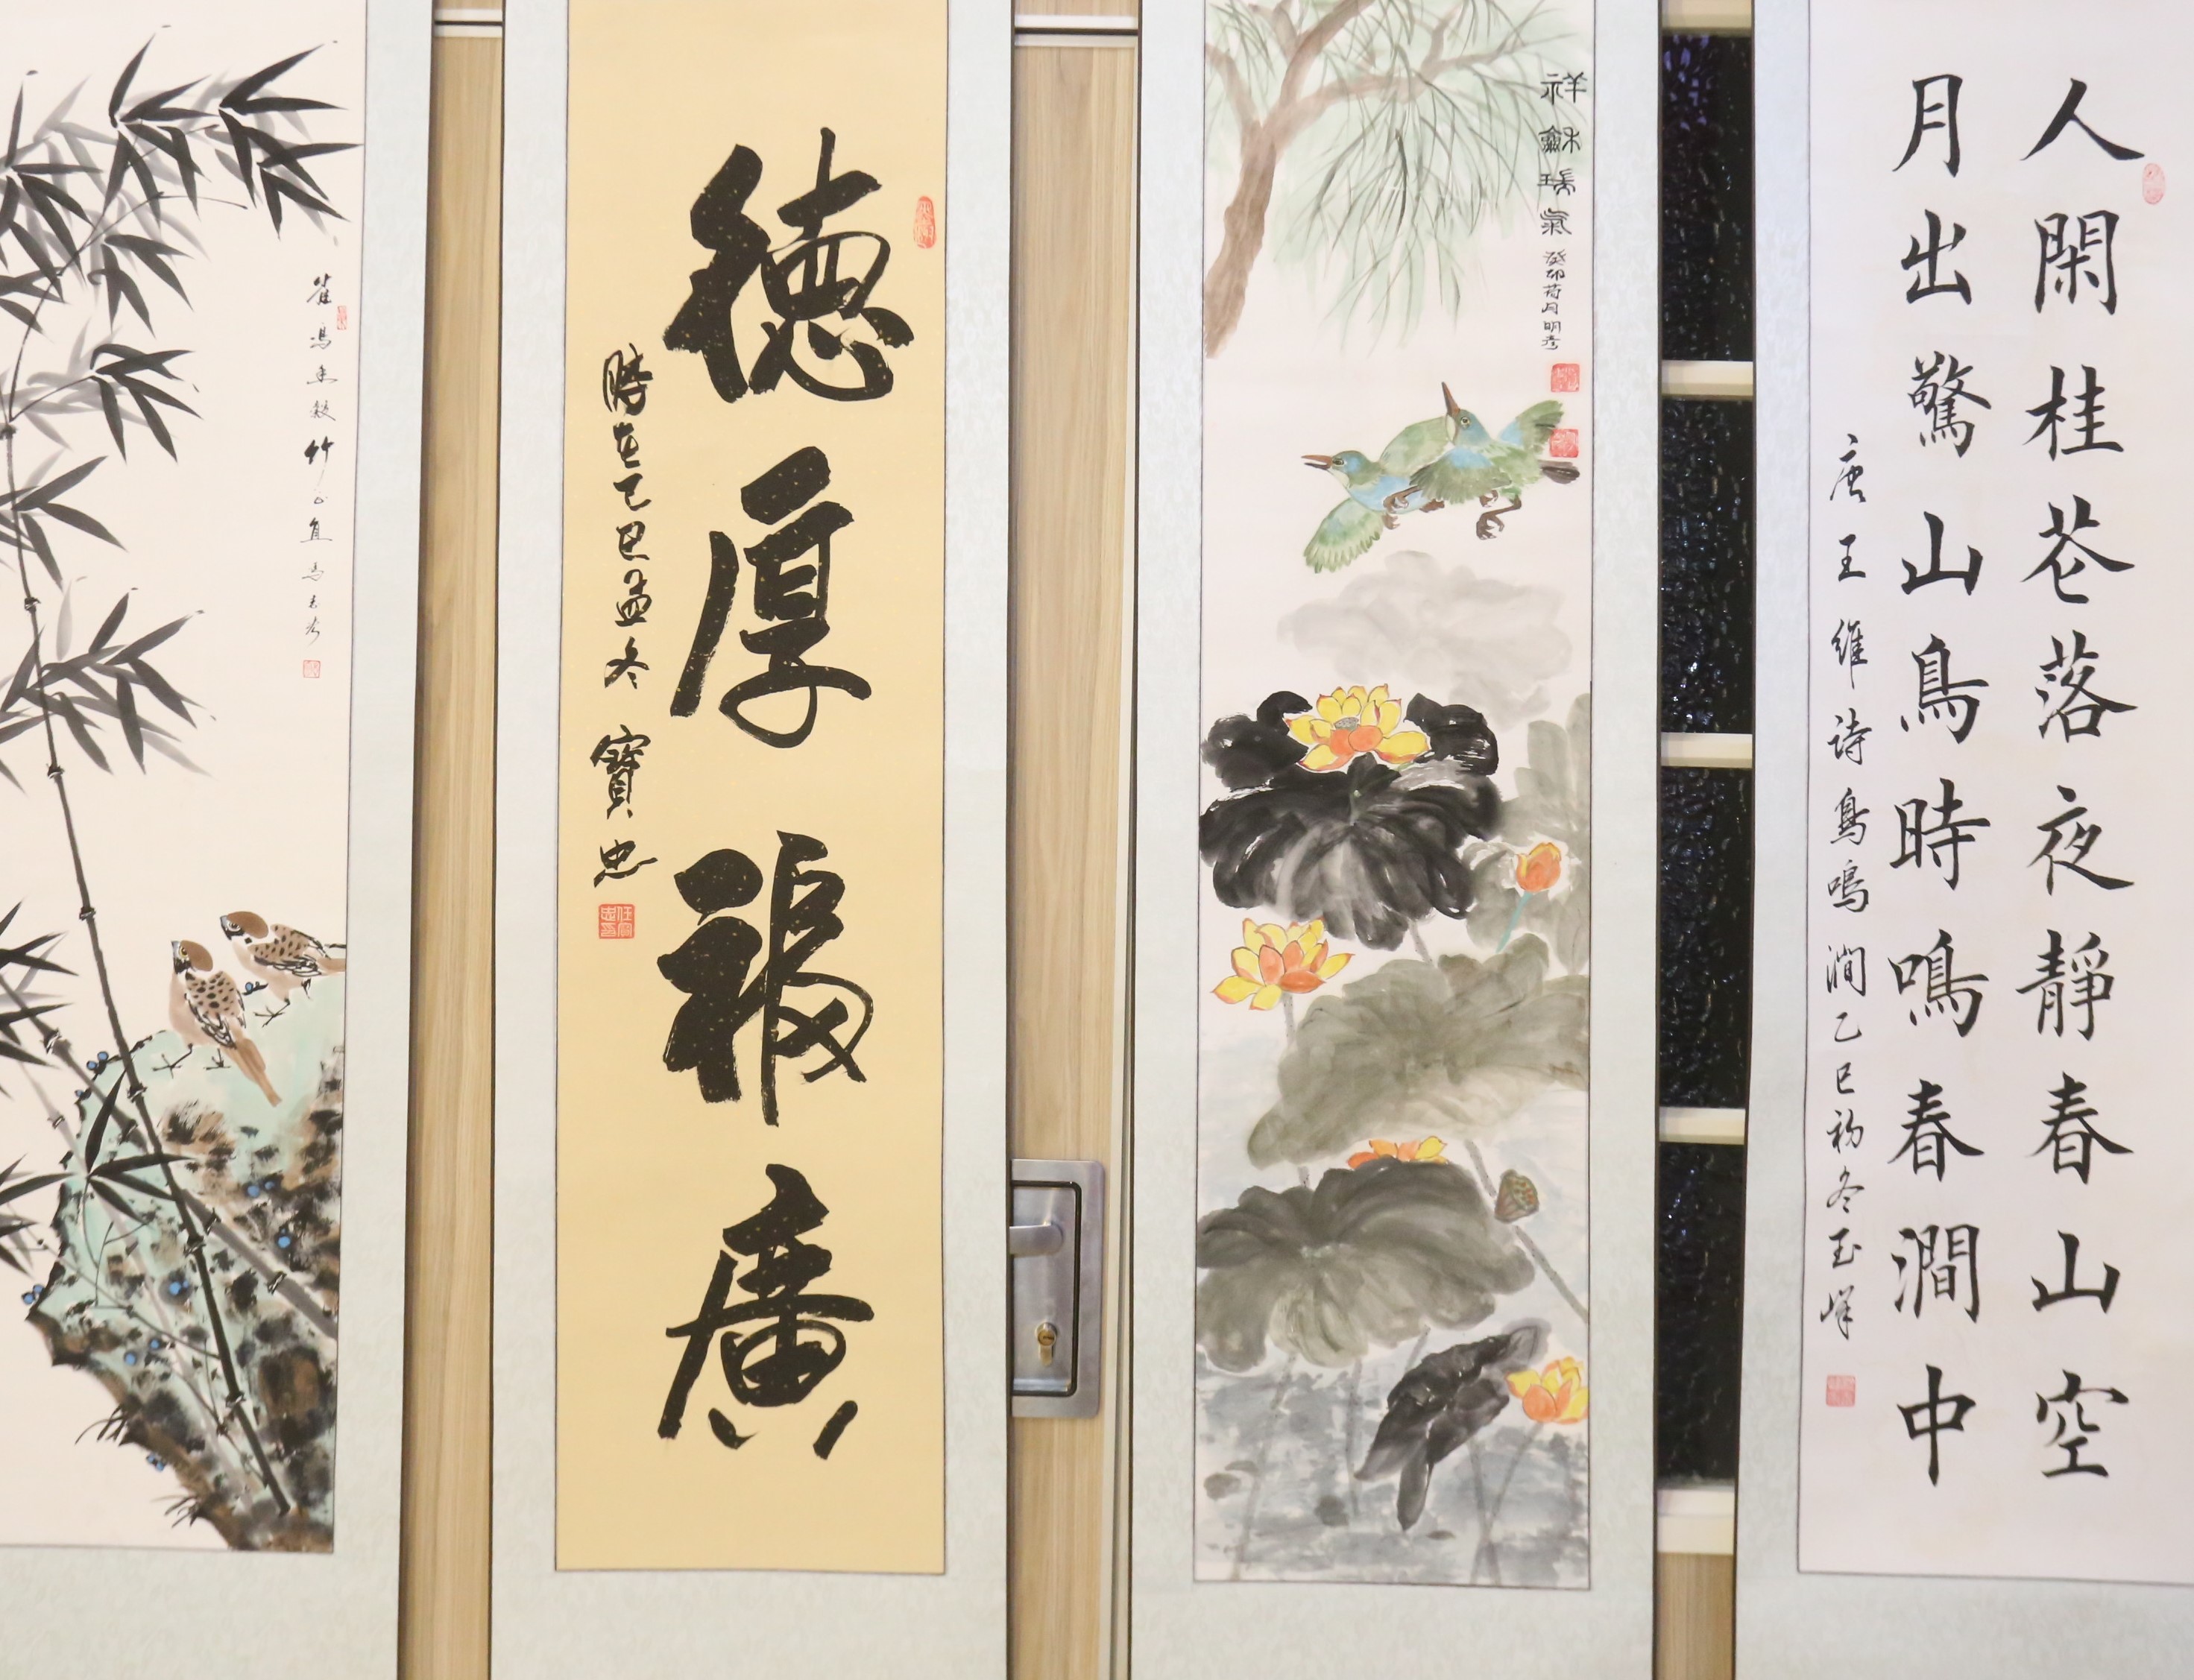 人閑桂花落夜靜春山空
月出驚山鳥時鳴春澗中
唐王維詩鳥鳴澗乙巳初冬玉峰
祥龢瑞氣
癸卯荷月明彥
德厚福廣
時在乙巳孟冬寶忠